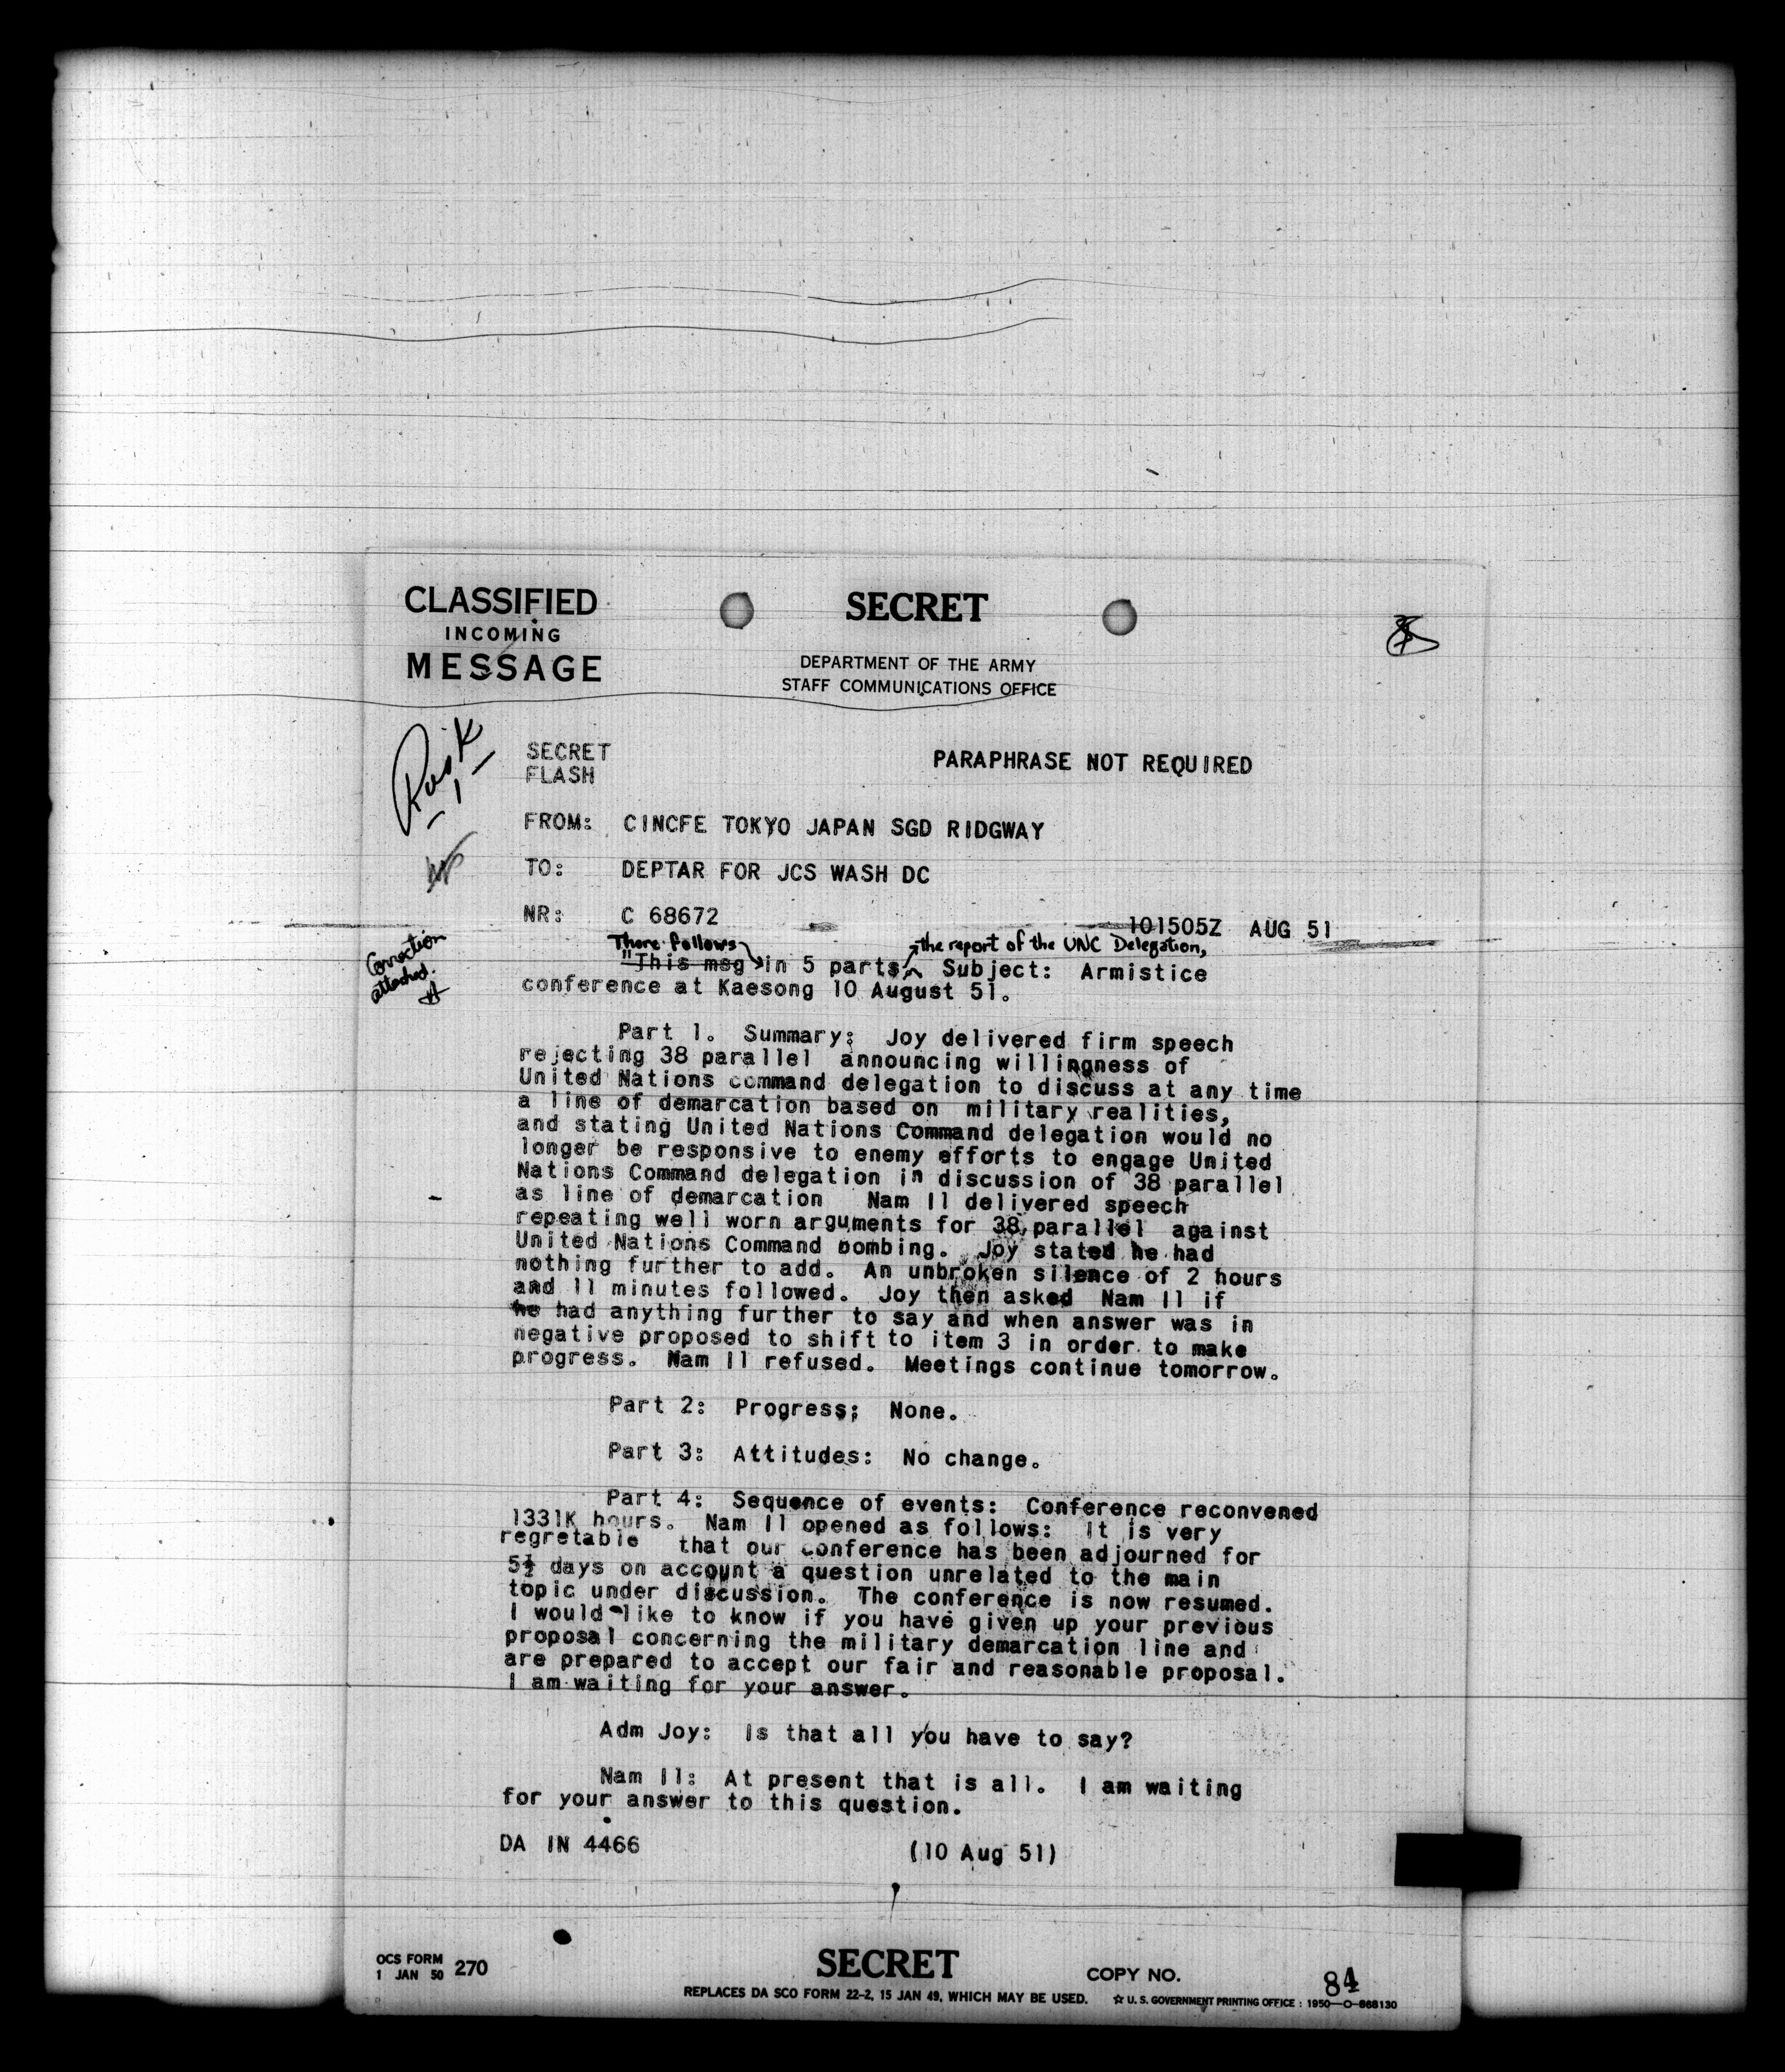 CLASSIFIED
INCOMING
MESSAGE
SECRET
DEPARTMENT OF THE ARMY
STAFF COMMUNICATIONS OFFICE
SECRET
FLASH
PARAPHRASE NOT REQUIRED
FROM: CINCFE TOKYO JAPAN SGD RIDGWAY
TO: DEPTAR FOR JCS WASH DC
NR: C 68672
101505Z AUG 51
Correction
attached.
There follows
the report of the UNC Delegation,
"This msg in 5 parts, Subject: Armistice
conference at Kaesong 10 August 51.
Part 1. Summary; Joy delivered firm speech
rejecting 38 parallel announcing willingness of
United Nations command delegation to discuss at any time
a line of demarcation based on military realities,
and stating United Nations Command delegation would no
longer be responsive to enemy efforts to engage United
Nations Command delegation in discussion of 38 parallel
as line of demarcation Nam Il delivered speech
repeating well worn arguments for 38 parallel against
United Nations Command bombing. Joy stated he had
nothing further to add. An unbroken silence of 2 hours
and 11 minutes followed. Joy then asked Nam Il if
he had anything further to say and when answer was in
negative proposed to shift to item 3 in order to make
progress. Nam Il refused. Meetings continue tomorrow.
Part 2: Progress; None.
Part 3: Attitudes: No change.
Part 4: Sequence of events: Conference reconvened
1331K hours. Nam Il opened as follows: It is very
regretable that our conference has been adjourned for
5½ days on account a question unrelated to the main
topic under discussion. The conference is now resumed.
I would like to know if you have given up your previous
proposal concerning the military demarcation line and
are prepared to accept our fair and reasonable proposal.
I am waiting for your answer.
Adm Joy: Is that all you have to say?
Nam Il: At present that is all. I am waiting
for your answer to this question.
DA IN 4466 (10 Aug 51)
OCS FORM
1 JAN 50 270
SECRET
COPY NO. 84
REPLACES DA SCO FORM 22-2, 15 JAN 49, WHICH MAY BE USED. ☆ U. S. GOVERNMENT PRINTING OFFICE : 1950—O-868130